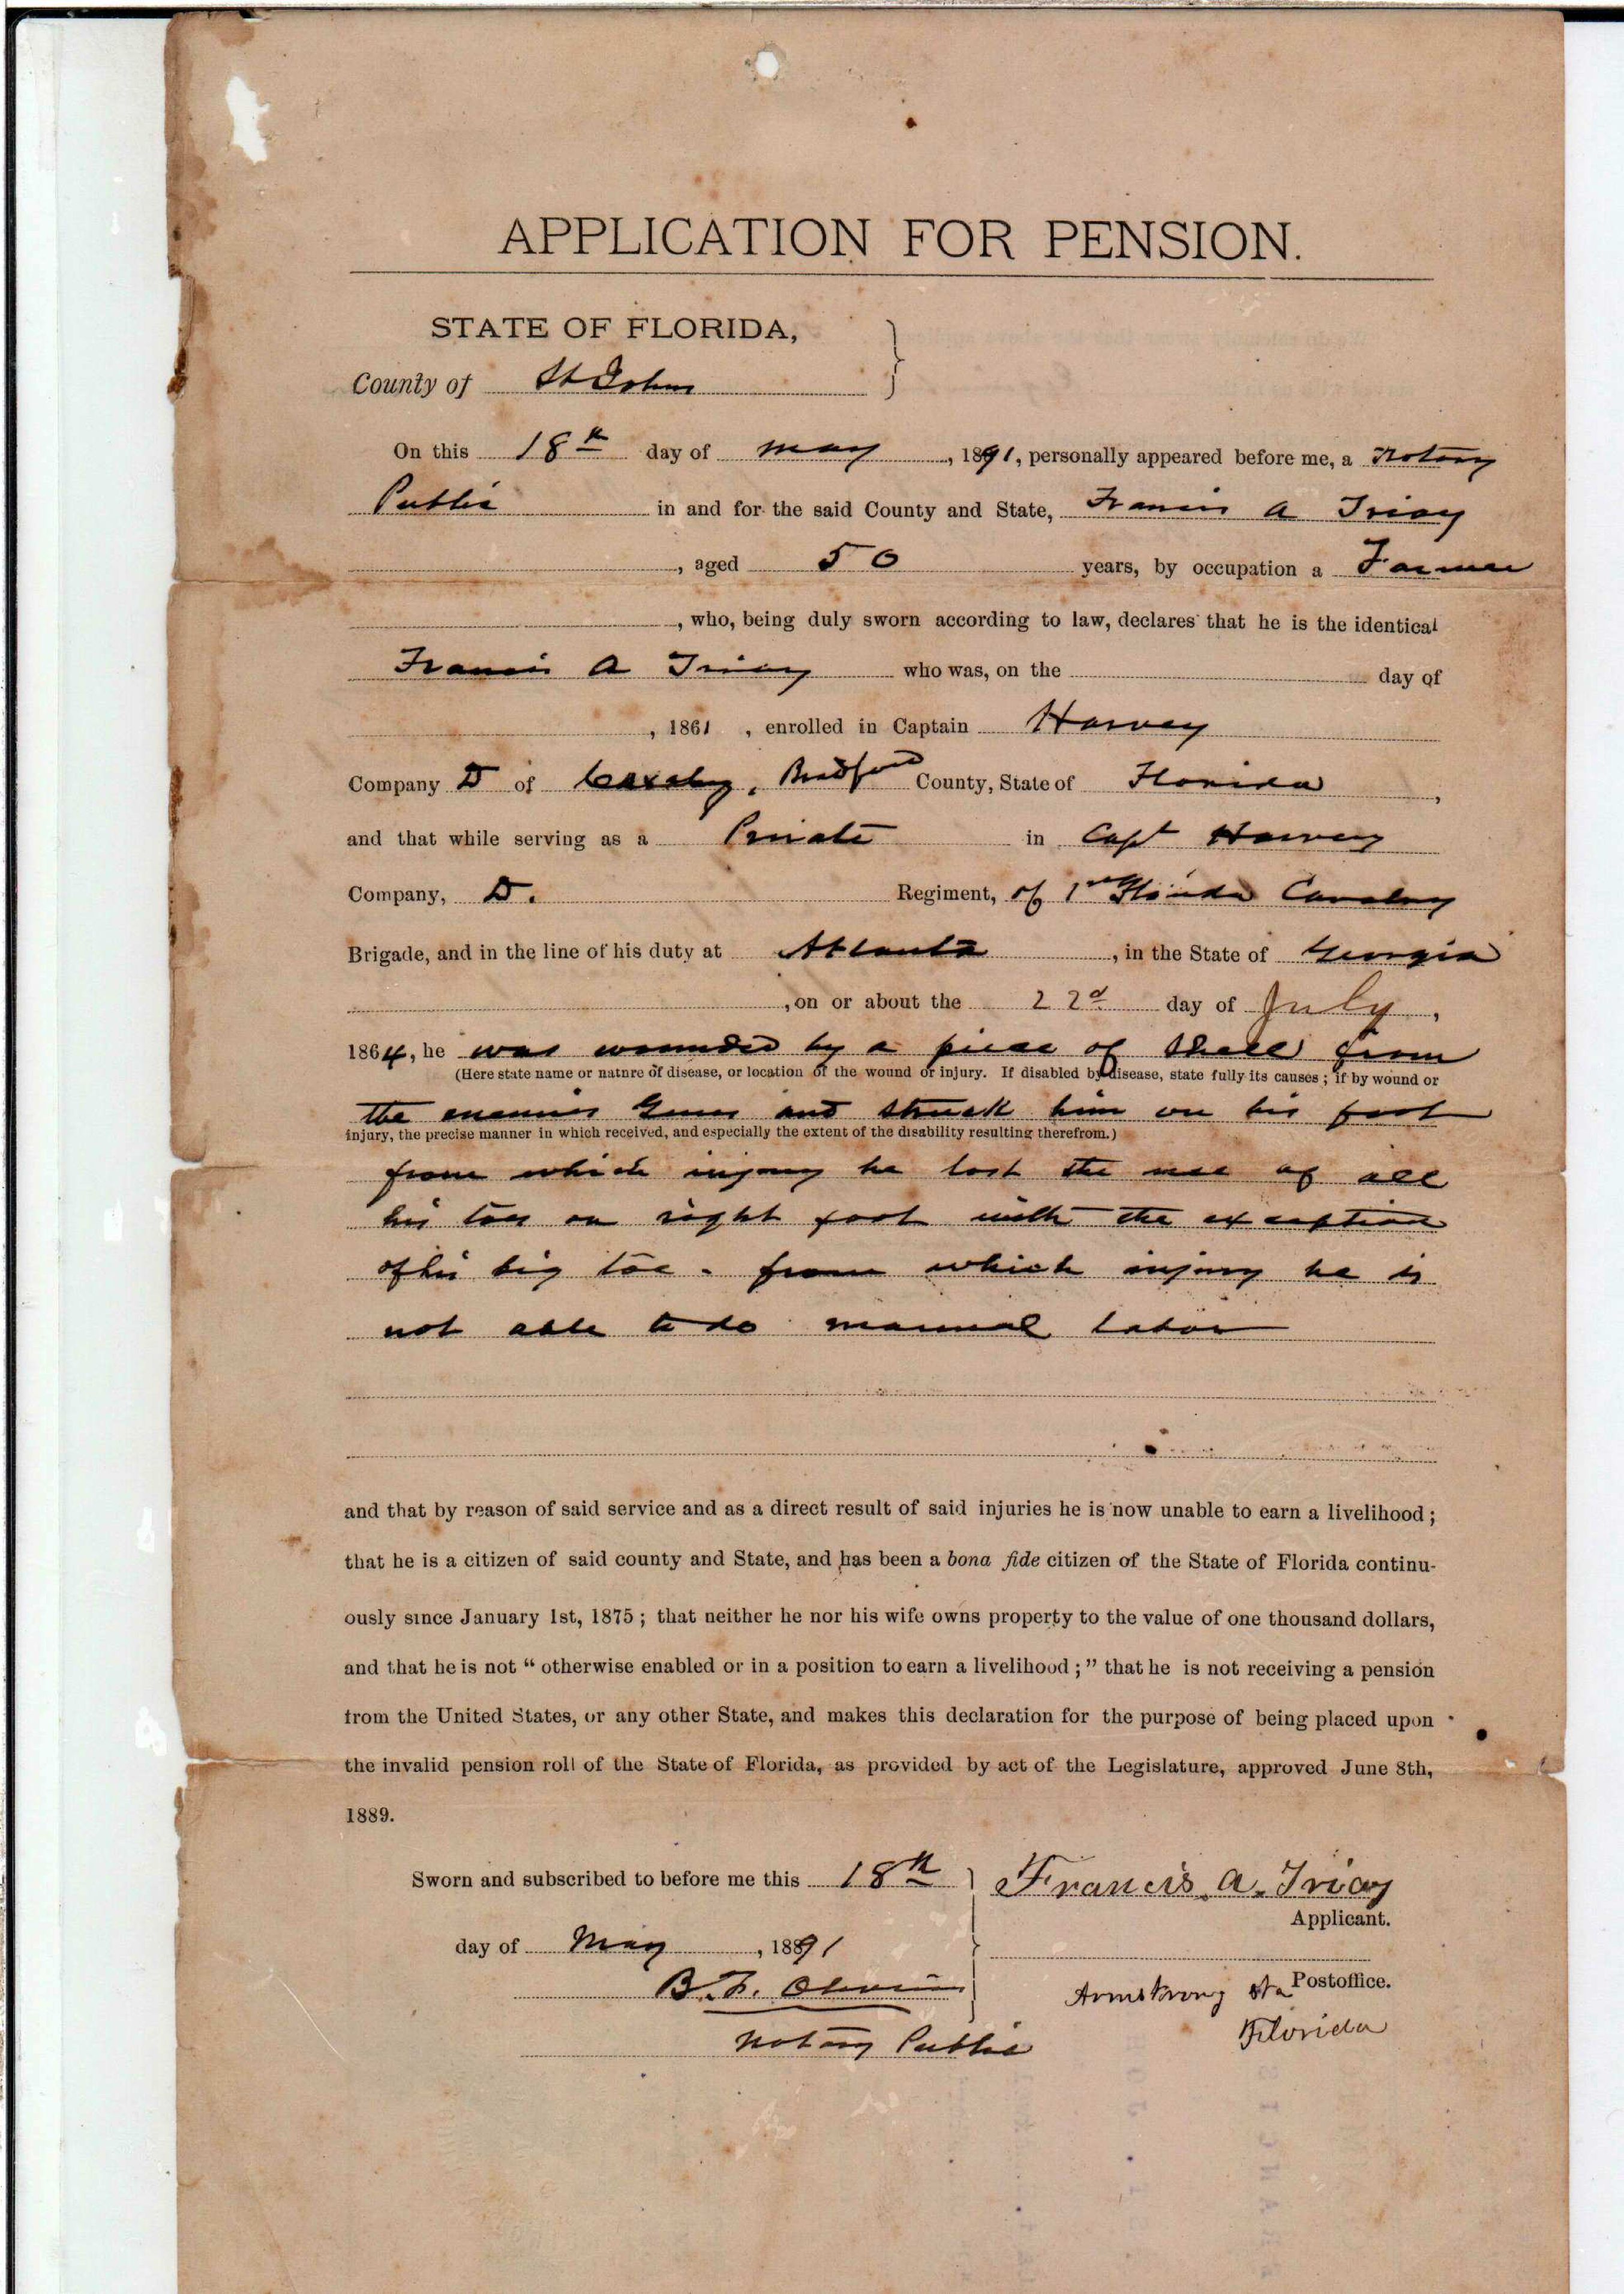 APPLICATION FOR PENSION.
STATE OF FLORIDA,
County of St Johns
On this 18th day of May, 1891, personally appeared before me, a Notary
Public in and for the said County and State, Francis A Triay
, aged 50 years, by occupation a Farmer
, who, being duly sworn according to law, declares that he is the identical
Francis A Triay who was, on the day of
, 1861, enrolled in Captain Harvey
Company D of Cavalry, Bradford County, State of Florida,
and that while serving as a Private in Capt Harvey
Company, D. Regiment, of 1st Florida Cavalry
Brigade, and in the line of his duty at Atlanta, in the State of Georgia
, on or about the 22d day of July,
1864, he was wounded by a piece of Shell from
(Here state name or natnre of disease, or location of the wound or injury. If disabled by disease, state fully its causes; if by wound or
the enemies Guns and struck him on his foot
injury, the precise manner in which received, and especially the extent of the disability resulting therefrom.)
from which injury he lost the use of all
his toes on right foot with the exception
of his big toe. from which injury he is
not able to do manual labor
and that by reason of said service and as a direct result of said injuries he is now unable to earn a livelihood;
that he is a citizen of said county and State, and has been a bona fide citizen of the State of Florida continu-
ously since January 1st, 1875; that neither he nor his wife owns property to the value of one thousand dollars,
and that he is not "otherwise enabled or in a position to earn a livelihood;" that he is not receiving a pension
from the United States, or any other State, and makes this declaration for the purpose of being placed upon
the invalid pension roll of the State of Florida, as provided by act of the Legislature, approved June 8th,
1889.
Sworn and subscribed to before me this 18th
Francis. A. Triay
Applicant.
day of May, 1891
B. F. Oliveros
Armstrong Sta Postoffice.
Florida
Notary Public